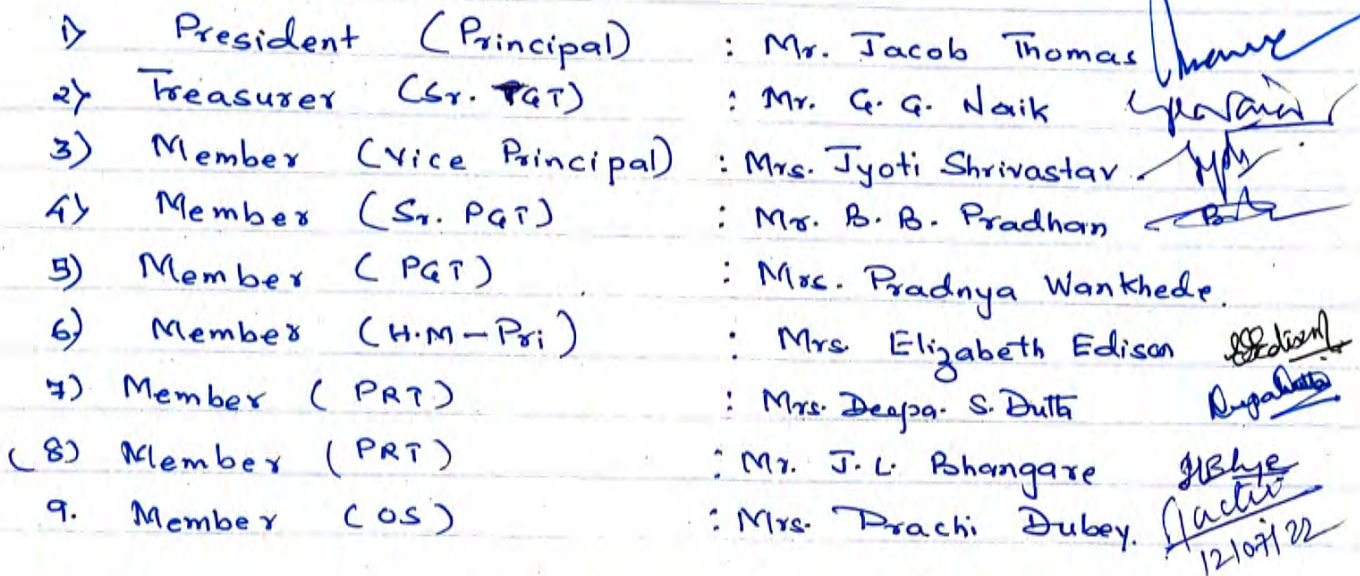 1) President (Principal) : Mr. Jacob Thomas
2) Treasurer (Sr. PGT) : Mr. G. G. Naik
3) Member (Vice Principal) : Mrs. Jyoti Shrivastav
4) Member (Sr. PGT) : Mr. B. B. Pradhan
5) Member (PGT) : Mrs. Pradnya Wankhede.
6) Member (H.M-Pri) : Mrs. Elizabeth Edison
7) Member (PRT) : Mrs. Deepa. S. Dutta
(8) Member (PRT) : Mr. J. L. Bhangare
9. Member (OS) : Mrs. Prachi Dubey.
12/07/22